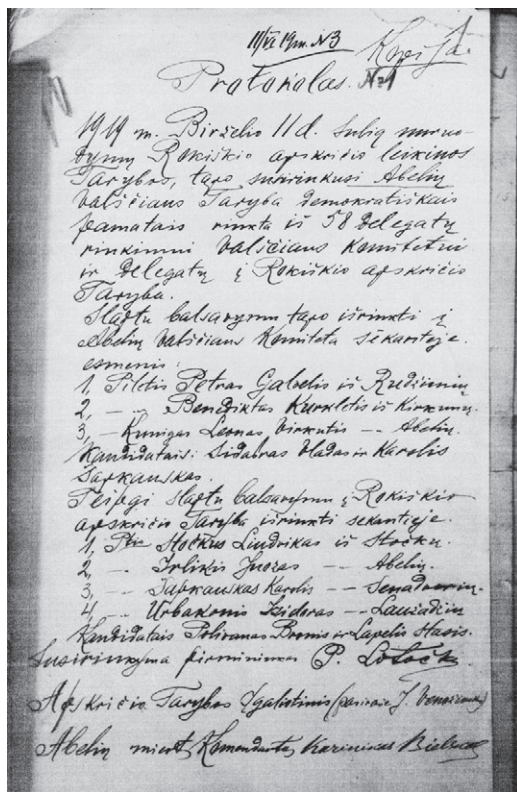 11/VI 19 m. N3
Kopija.
Protokolas. № 1
1919 m. Birželio 11 d. sulig nuro-
dymų Rokiškio apskričio leikinos
Tarybos, tapo susirinkusi Abelių
Valsčiaus Taryba demokratiškais
pamatais rinkta iš 58 delegatų
rinkimui Valsčiaus Komitetui
ir delegatų į Rokiškio apskričio
Taryba.
Slaptu balsavymu tapo išrinkti į
Abelių Valsčiaus Komiteta sekantieje
esmenis:
1, Pilėtis Petras Galvelis iš Rudžionių
2, -- Benediktas Kurklėtis iš Kirkunų.
3, - Kunigas Leonas Virkutis -- Abelių.
Kandidatais: Sidabras Vladas ir Karolis
Sapkauskas.
Teipgi slaptu balsavymu į Rokiškio
apskričio Taryba išrinkti sekantieje.
1, Stočkus Liudvikas iš Stočkų.
2, -- Irlikis Juozas -- Abelių.
3, -- Sapkauskas Karolis --
4, -- Urbakonis Izidoras -- Laužadžiu
Kandidatais Polivanas Bronis ir Lapelis Stasis.
Susirinkyma pirmininkas P.
Apskričio Tarybos Įgaliotinis (pasirašė J.
Abelių miest. Komendantas Karininkas